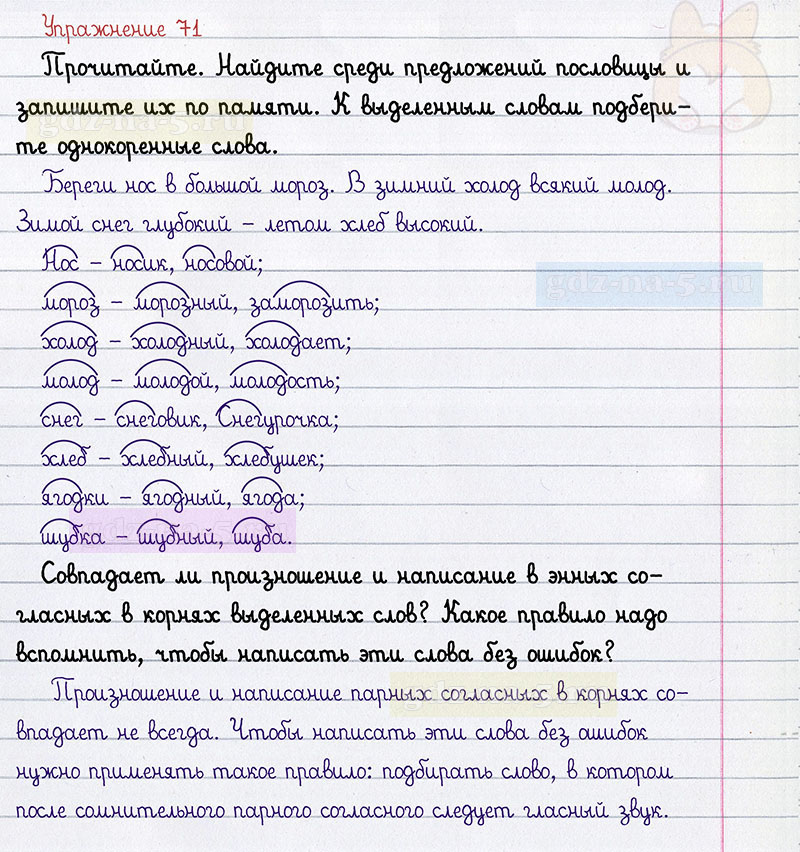 Упражнение 71
Прочитайте. Найдите среди предложений пословицы и
запишите их по памяти. К выделенным словам подбери-
те однокоренные слова.
Береги нос в большой мороз. В зимний холод всякий молод.
Зимой снег глубокий – летом хлеб высокий.
Нос – носик, носовой;
мороз – морозный, заморозить;
холод – холодный, холодает;
молод – молодой, молодость;
снег – снеговик, Снегурочка;
хлеб – хлебный, хлебушек;
ягодки – ягодный, ягода;
шубка – шубный, шуба.
Совпадает ли произношение и написание в энных со-
гласных в корнях выделенных слов? Какое правило надо
вспомнить, чтобы написать эти слова без ошибок?
Произношение и написание парных согласных в корнях со-
впадает не всегда. Чтобы написать эти слова без ошибок
нужно применять такое правило: подбирать слово, в котором
после сомнительного парного согласного следует гласный звук.
gdz-na-5.ru
gdz-na-5.ru
gdz-na-5.ru
gdz-na-5.ru